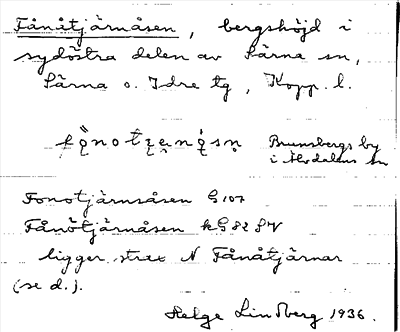 Fånåtjärnåsen, bergshöjd i
sydöstra delen av Särna sn,
Särna o. Idre tg, Kopp. l.
Brunnbergs by
i Älvdalens sn
Fonotjärnsåsen G 107
Fånötjärnåsen kG 82 SV
ligger strax N Fånåtjärnar
(se d.).
Helge Lindberg 1936.